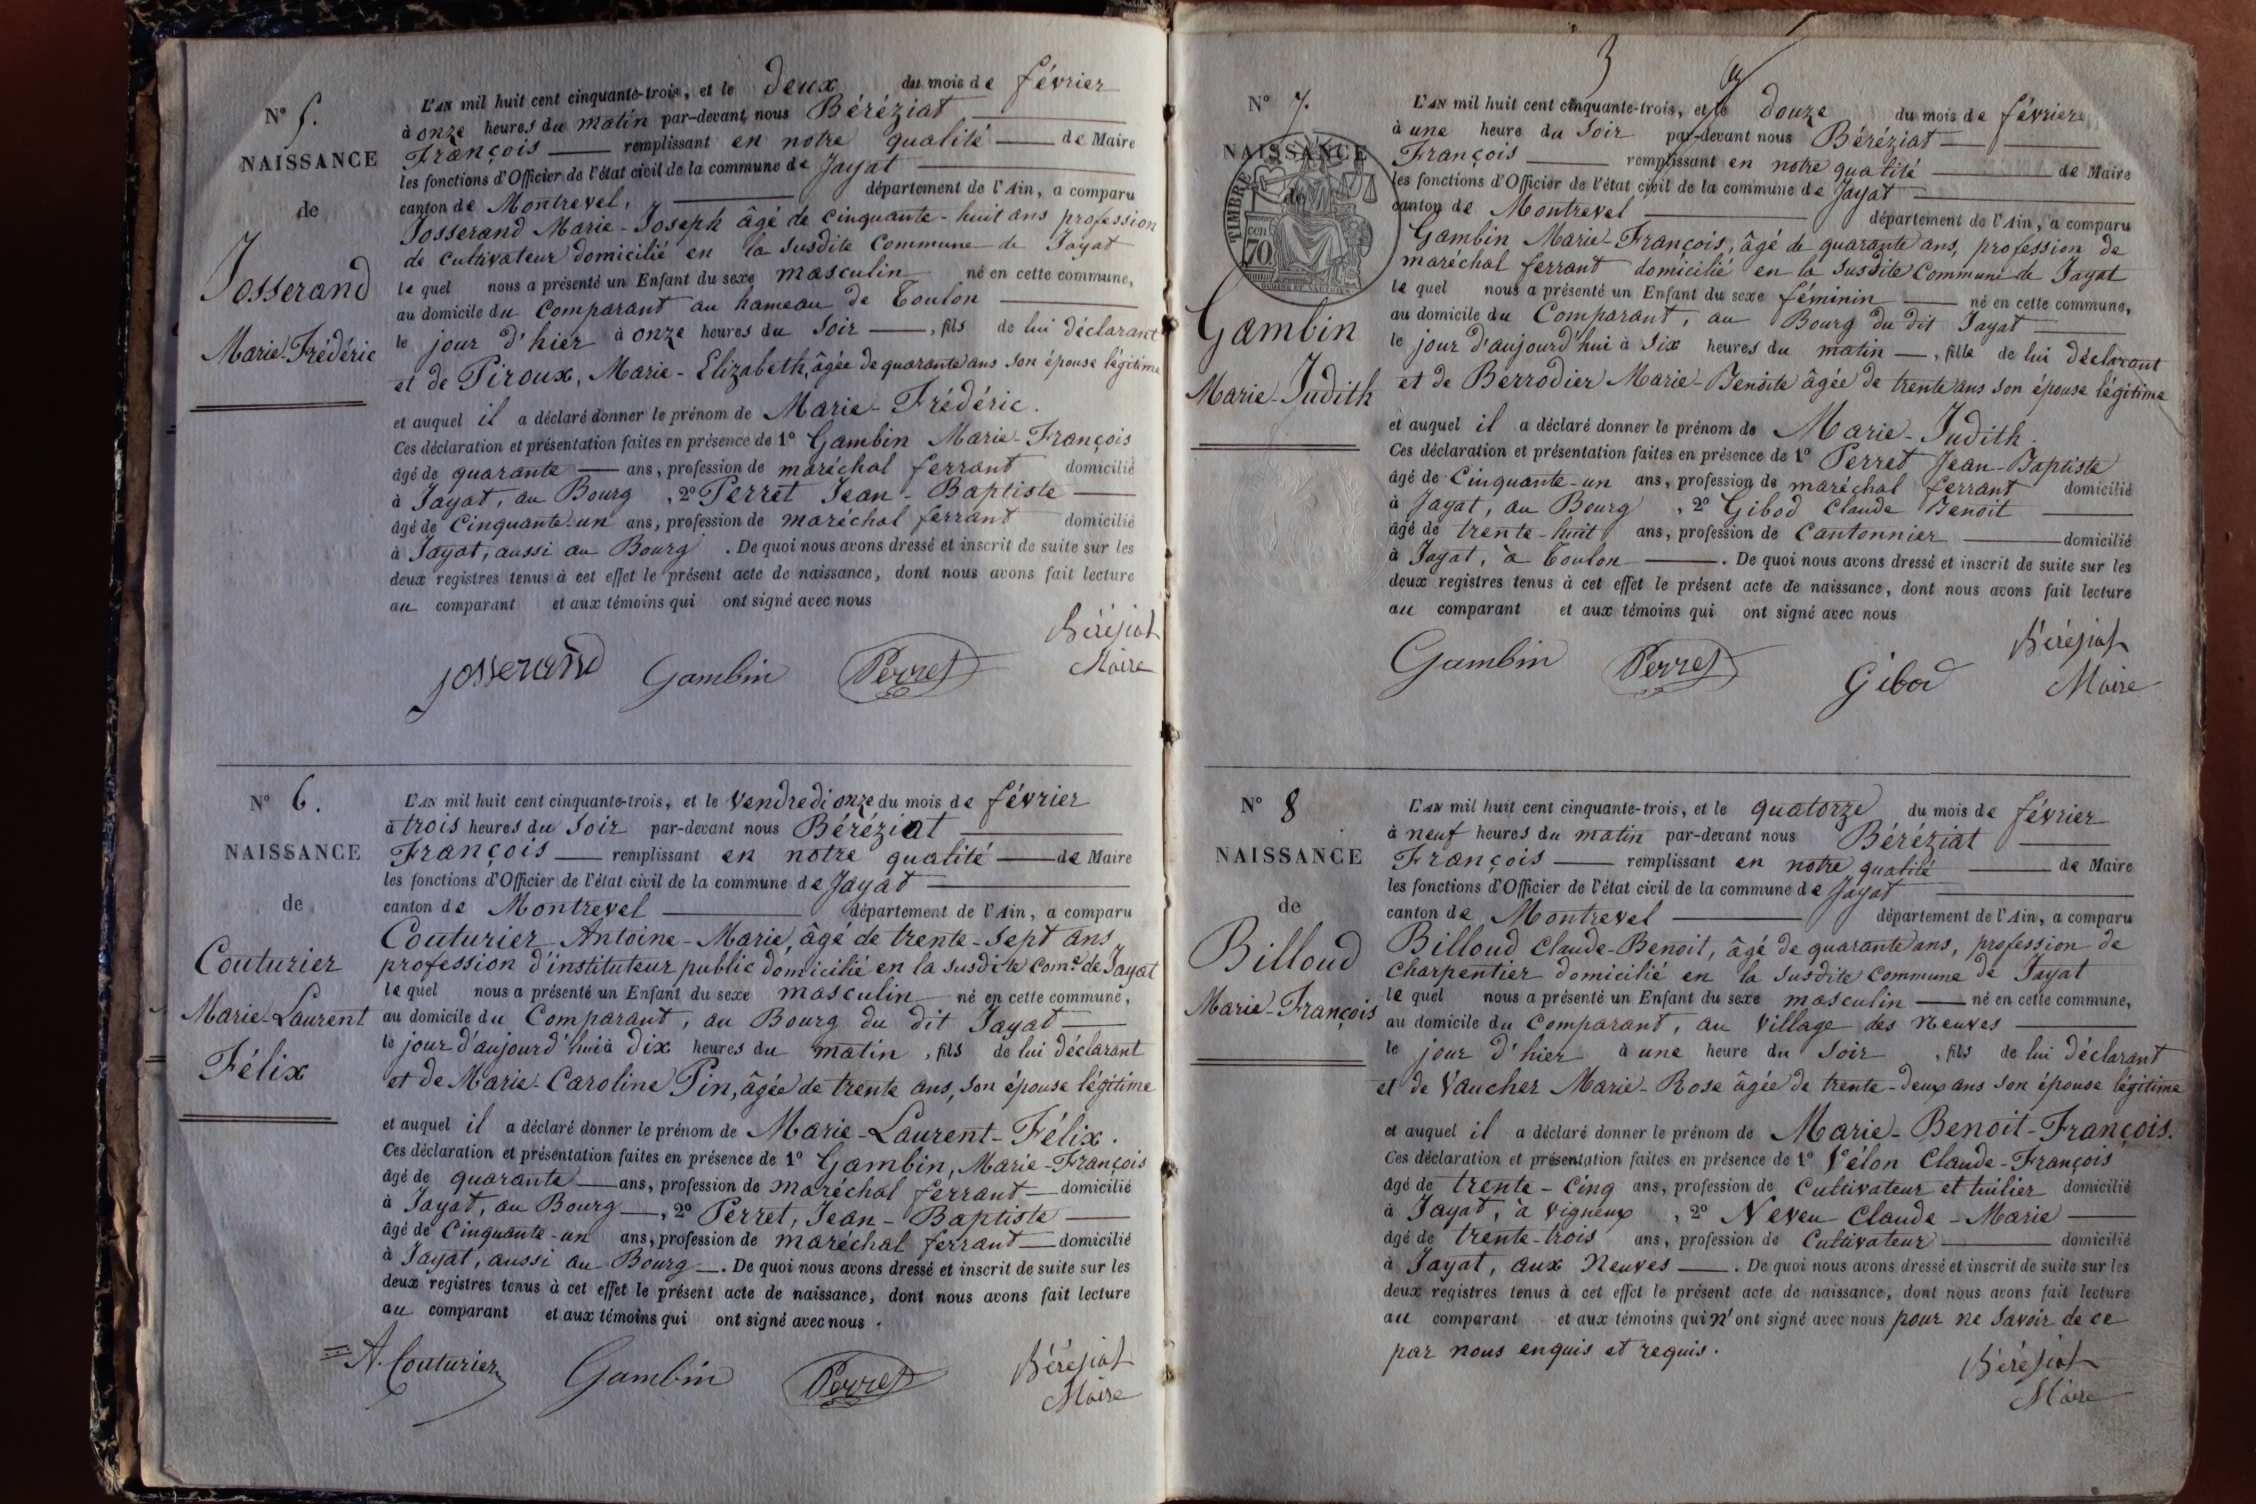 N° 5.
NAISSANCE
de
Josserand
Marie-Frédéric
L'AN mil huit cent cinquante-trois, et le deux du mois de février
à onze heures du matin par-devant nous Béréziat
François remplissant en notre qualité de Maire
les fonctions d'Officier de l'état civil de la commune de Jayat
canton de Montrevel, département de l'Ain, a comparu
Josserand Marie-Joseph âgé de cinquante-huit ans profession
de cultivateur domicilié en la susdite commune de Jayat
le quel nous a présenté un Enfant du sexe masculin né en cette commune,
au domicile du Comparant au hameau de Toulon
le jour d'hier à onze heures du soir, fils de lui déclarant
et de Piroux, Marie-Elizabeth, âgée de quarante ans son épouse légitime
et auquel il a déclaré donner le prénom de Marie-Frédéric.
Ces déclaration et présentation faites en présence de 1° Gambin Marie-François
âgé de quarante ans, profession de maréchal ferrant domicilié
à Jayat, au Bourg, 2° Perret Jean-Baptiste
âgé de Cinquante-un ans, profession de maréchal ferrant domicilié
à Jayat, aussi au Bourg. De quoi nous avons dressé et inscrit de suite sur les
deux registres tenus à cet effet le présent acte de naissance, dont nous avons fait lecture
au comparant et aux témoins qui ont signé avec nous
Josserand Gambin Perret Béréziat
Maire
N° 6.
NAISSANCE
de
Couturier
Marie-Laurent
Félix
L'AN mil huit cent cinquante-trois, et le Vendredi onze du mois de février
à trois heures du soir par-devant nous Béréziat
François remplissant en notre qualité de Maire
les fonctions d'Officier de l'état civil de la commune de Jayat
canton de Montrevel département de l'Ain, a comparu
Couturier Antoine-Marie, âgé de trente-sept ans
profession d'instituteur public domicilié en la susdite Com.e de Jayat
le quel nous a présenté un Enfant du sexe masculin né en cette commune,
au domicile du Comparant, au Bourg du dit Jayat
le jour d'aujourd'hui à dix heures du matin, fils de lui déclarant
et de Marie-Caroline Pin, âgée de trente ans, son épouse légitime
et auquel il a déclaré donner le prénom de Marie-Laurent-Félix.
Ces déclaration et présentation faites en présence de 1° Gambin, Marie-François
âgé de quarante ans, profession de maréchal ferrant domicilié
à Jayat, au Bourg, 2° Perret, Jean-Baptiste
âgé de Cinquante-un ans, profession de maréchal ferrant domicilié
à Jayat, aussi au Bourg. De quoi nous avons dressé et inscrit de suite sur les
deux registres tenus à cet effet le présent acte de naissance, dont nous avons fait lecture
au comparant et aux témoins qui ont signé avec nous.
A. Couturier Gambin Perret Béréziat
Maire
3
N° 7.
NAISSANCE
de
TIMBRE
70
Gambin
Marie-Judith
L'AN mil huit cent cinquante-trois, et le douze du mois de février
à une heure du soir par-devant nous Béréziat
François remplissant en notre qualité de Maire
les fonctions d'Officier de l'état civil de la commune de Jayat
canton de Montrevel département de l'Ain, a comparu
Gambin Marie-François, âgé de quarante ans, profession de
maréchal ferrant domicilié en la susdite Commune de Jayat
le quel nous a présenté un Enfant du sexe féminin né en cette commune,
au domicile du Comparant, au Bourg du dit Jayat
le jour d'aujourd'hui à six heures du matin, fille de lui déclarant
et de Berrodier Marie-Benoite âgée de trente ans son épouse légitime
et auquel il a déclaré donner le prénom de Marie-Judith.
Ces déclaration et présentation faites en présence de 1° Perret Jean-Baptiste
âgé de Cinquante-un ans, profession de maréchal ferrant domicilié
à Jayat, au Bourg, 2° Gibod Claude Benoit
âgé de trente-huit ans, profession de Cantonnier domicilié
à Jayat, à Toulon. De quoi nous avons dressé et inscrit de suite sur les
deux registres tenus à cet effet le présent acte de naissance, dont nous avons fait lecture
au comparant et aux témoins qui ont signé avec nous
Gambin Perret Gibod Béréziat
Maire
N° 8
NAISSANCE
de
Billoud
Marie-François
L'AN mil huit cent cinquante-trois, et le quatorze du mois de février
à neuf heures du matin par-devant nous Béréziat
François remplissant en notre qualité de Maire
les fonctions d'Officier de l'état civil de la commune de Jayat
canton de Montrevel département de l'Ain, a comparu
Billoud Claude-Benoit, âgé de quarante ans, profession de
charpentier domicilié en la susdite Commune de Jayat
le quel nous a présenté un Enfant du sexe masculin né en cette commune,
au domicile du Comparant, au Village des Neuves
le jour d'hier à une heure du soir, fils de lui déclarant
et de Vaucher Marie-Rose âgée de trente-deux ans son épouse légitime
et auquel il a déclaré donner le prénom de Marie-Benoit-François.
Ces déclaration et présentation faites en présence de 1° Vélon Claude-François
âgé de trente-cinq ans, profession de Cultivateur et tuilier domicilié
à Jayat, à Vigneux, 2° Neveu Claude-Marie
âgé de trente-trois ans, profession de Cultivateur domicilié
à Jayat, aux Neuves. De quoi nous avons dressé et inscrit de suite sur les
deux registres tenus à cet effet le présent acte de naissance, dont nous avons fait lecture
au comparant et aux témoins qui n'ont signé avec nous pour ne savoir de ce
par nous enquis et requis.
Béréziat
Maire